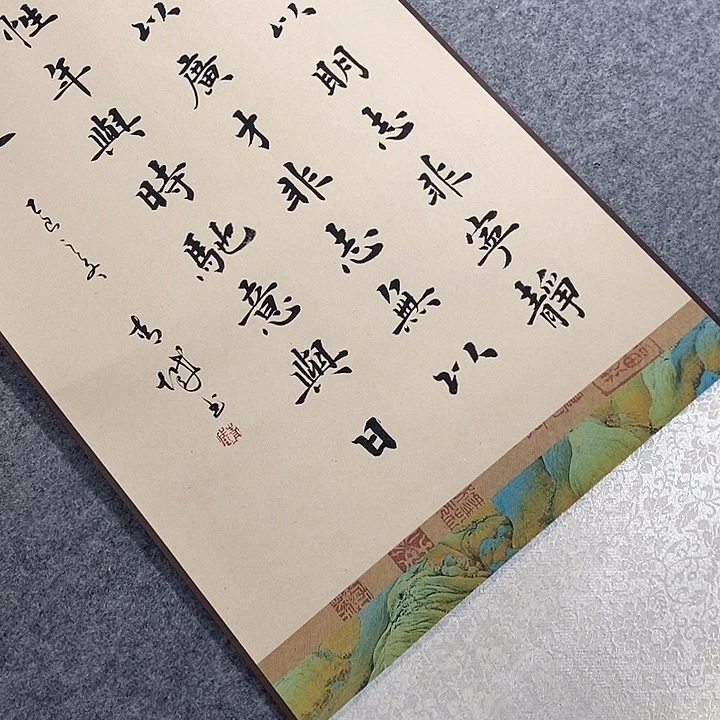 以明志非寧靜
以廣才非志無以
性年與時馳意與日
乙巳之
書